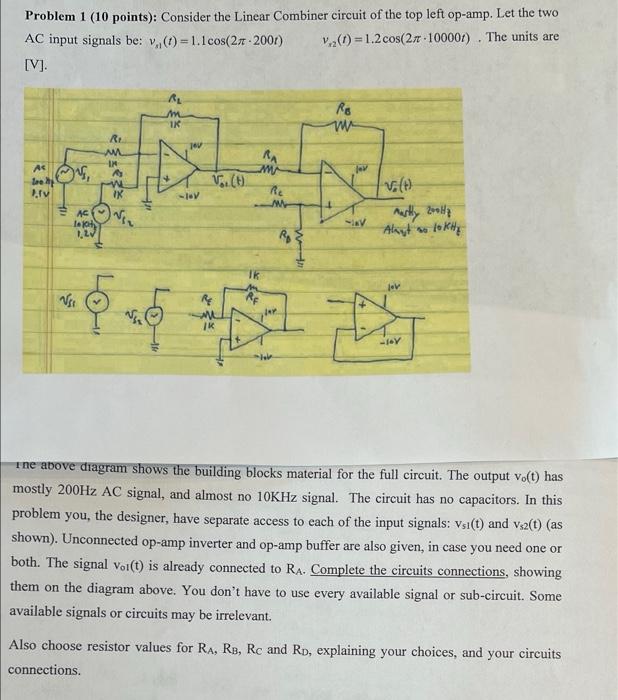 Problem 1 (10 points): Consider the Linear Combiner circuit of the top left op-amp. Let the two
AC input signals be: v_s1(t) = 1.1cos(2π·200t) v_s2(t) = 1.2cos(2π·10000t) . The units are
[V].
R_L
1K
R_B
R_1
10V
1K
R_A
AC
V_S1
R_2
V_01(t)
10V
V_o(t)
1.1V
1K
-10V
R_C
Mostly 200Hz
AC
V_S2
-10V
Almost no 10KHz
10KHz
1.2V
R_D
1K
V_S1
V_S2
R_E
R_F
10V
10V
1K
-10V
-10V
The above diagram shows the building blocks material for the full circuit. The output v_o(t) has
mostly 200Hz AC signal, and almost no 10KHz signal. The circuit has no capacitors. In this
problem you, the designer, have separate access to each of the input signals: v_s1(t) and v_s2(t) (as
shown). Unconnected op-amp inverter and op-amp buffer are also given, in case you need one or
both. The signal v_o1(t) is already connected to R_A. Complete the circuits connections, showing
them on the diagram above. You don't have to use every available signal or sub-circuit. Some
available signals or circuits may be irrelevant.
Also choose resistor values for R_A, R_B, R_C and R_D, explaining your choices, and your circuits
connections.